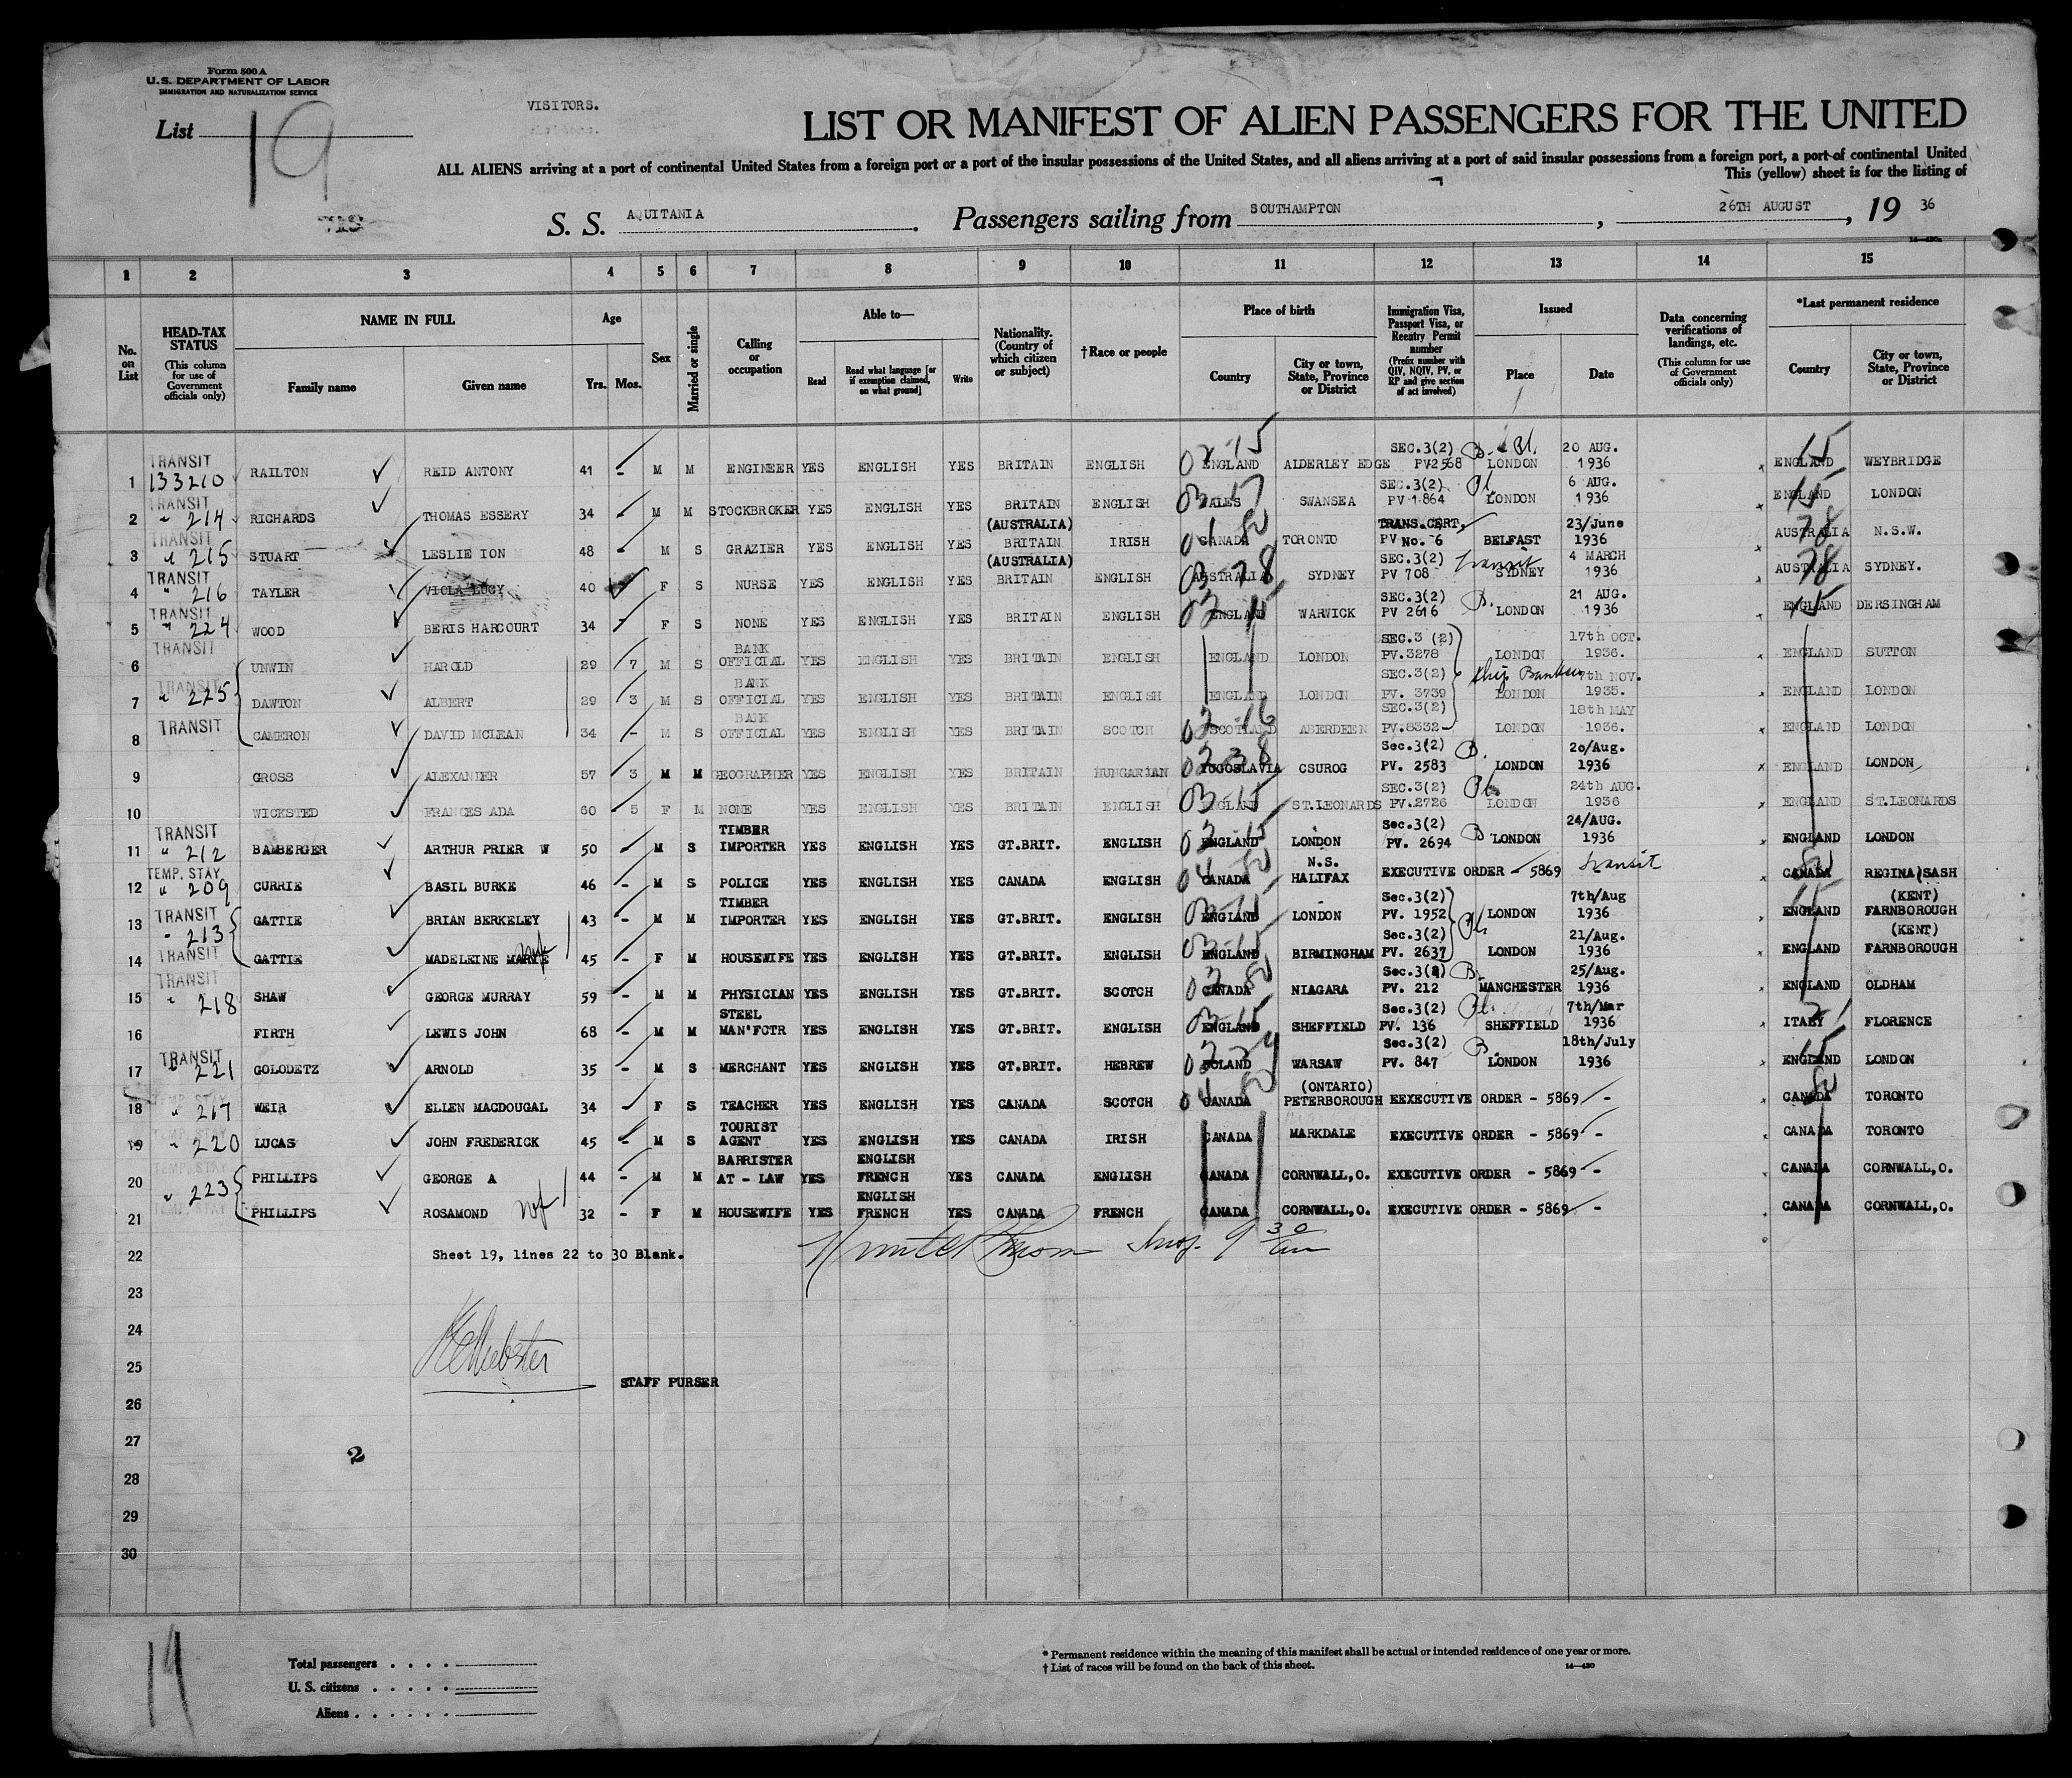 Form 500 A
U.S. DEPARTMENT OF LABOR
IMMIGRATION AND NATURALIZATION SERVICE
VISITORS.
List 19
LIST OR MANIFEST OF ALIEN PASSENGERS FOR THE UNITED
ALL ALIENS arriving at a port of continental United States from a foreign port or a port of the insular possessions of the United States, and all aliens arriving at a port of said insular possessions from a foreign port, a port of continental United
This (yellow) sheet is for the listing of
S. S. AQUITANIA . Passengers sailing from SOUTHAMPTON , 26TH AUGUST , 19 36
1 2 3 4 5 6 7 8 9 10 11 12 13 14 15
No. on List
HEAD-TAX STATUS (This column for use of Government officials only)
NAME IN FULL Family name Given name
Age Yrs. Mos.
Sex
Married or single
Calling or occupation
Able to— Read Read what language [or if exemption claimed, on what ground] Write
Nationality. (Country of which citizen or subject)
†Race or people
Place of birth Country City or town, State, Province or District
Immigration Visa, Passport Visa, or Reentry Permit number (Prefix number with QIV, NQIV, PV, or RP and give section of act involved)
Issued Place Date
Data concerning verifications of landings, etc. (This column for use of Government officials only)
*Last permanent residence Country City or town, State, Province or District
1 TRANSIT 133210 RAILTON REID ANTONY 41 - M M ENGINEER YES ENGLISH YES BRITAIN ENGLISH 02-15 ENGLAND ALDERLEY EDGE SEC.3(2) PV2568 LONDON 20 AUG. 1936 15 ENGLAND WEYBRIDGE
2 TRANSIT " 214 RICHARDS THOMAS ESSERY 34 - M M STOCKBROKER YES ENGLISH YES BRITAIN ENGLISH 03-17 WALES SWANSEA SEC.3(2) PV 1864 LONDON 6 AUG. 1936 15 ENGLAND LONDON
3 TRANSIT " 215 STUART LESLIE ION 48 - M S GRAZIER YES ENGLISH YES (AUSTRALIA) BRITAIN IRISH 04 80 CANADA TORONTO TRANS.CERT. PV No. 6 BELFAST 23/June 1936 78 AUSTRALIA N.S.W.
4 TRANSIT " 216 TAYLER VIOLA LUCY 40 F S NURSE YES ENGLISH YES (AUSTRALIA) BRITAIN ENGLISH 03-78 AUSTRALIA SYDNEY SEC.3(2) PV 708 transit SYDNEY 4 MARCH 1936 78 AUSTRALIA SYDNEY.
5 TRANSIT " 224 WOOD BERIS HARCOURT 34 - F S NONE YES ENGLISH YES BRITAIN ENGLISH 02 15 ENGLAND WARWICK SEC.3(2) PV 2616 B. LONDON 21 AUG. 1936 15 ENGLAND DERSINGHAM
6 TRANSIT UNWIN HAROLD 29 7 M S BANK OFFICIAL YES ENGLISH YES BRITAIN ENGLISH ENGLAND LONDON SEC.3 (2) PV.3278 LONDON 17th OCT. 1936. ENGLAND SUTTON
7 TRANSIT " 225 DAWTON ALBERT 29 3 M S BANK OFFICIAL YES ENGLISH YES BRITAIN ENGLISH ENGLAND LONDON SEC.3(2) PV. 3739 LONDON 7th NOV. 1935. ENGLAND LONDON
8 TRANSIT CAMERON DAVID MCLEAN 34 - M S BANK OFFICIAL YES ENGLISH YES BRITAIN SCOTCH 02-16 SCOTLAND ABERDEEN SEC.3(2) PV.8332 LONDON 18th MAY 1936. ENGLAND LONDON
9 GROSS ALEXANDER 57 3 M M GEOGRAPHER YES ENGLISH YES BRITAIN HUNGARIAN YUGOSLAVIA CSUROG Sec.3(2) PV. 2583 B. LONDON 20/Aug. 1936 ENGLAND LONDON
10 WICKSTED FRANCES ADA 60 5 F M NONE YES ENGLISH YES BRITAIN ENGLISH 03-15 ENGLAND ST.LEONARDS SEC.3(2) PV.2726 LONDON 24th AUG. 1936 ENGLAND ST.LEONARDS
11 TRANSIT " 212 BAMBERGER ARTHUR PRIER W 50 - M S TIMBER IMPORTER YES ENGLISH YES GT.BRIT. ENGLISH 02-15 ENGLAND LONDON Sec.3(2) PV. 2694 B LONDON 24/AUG. 1936 ENGLAND LONDON
12 TEMP. STAY " 209 CURRIE BASIL BURKE 46 - M S POLICE YES ENGLISH YES CANADA ENGLISH 04 80 CANADA N.S. HALIFAX EXECUTIVE ORDER - 5869 transit 80 CANADA REGINA, SASH
13 TRANSIT " 213 GATTIE BRIAN BERKELEY 43 - M M TIMBER IMPORTER YES ENGLISH YES GT.BRIT. ENGLISH ENGLAND LONDON Sec.3(2) PV. 1952 LONDON 7th/Aug 1936 15 ENGLAND (KENT) FARNBOROUGH
14 TRANSIT GATTIE MADELEINE MARIE wf 45 - F M HOUSEWIFE YES ENGLISH YES GT.BRIT. ENGLISH 03-15 ENGLAND BIRMINGHAM Sec.3(2) PV. 2637 LONDON 21/Aug. 1936 ENGLAND (KENT) FARNBOROUGH
15 TRANSIT " 218 SHAW GEORGE MURRAY 59 - M M PHYSICIAN YES ENGLISH YES GT.BRIT. SCOTCH 02 80 CANADA NIAGARA Sec.3(2) B. PV. 212 MANCHESTER 25/Aug. 1936 ENGLAND OLDHAM
16 FIRTH LEWIS JOHN 68 - M M STEEL MAN'FCTR YES ENGLISH YES GT.BRIT. ENGLISH 03-15 ENGLAND SHEFFIELD Sec.3(2) PV. 136 SHEFFIELD 7th/Mar 1936 21 ITALY FLORENCE
17 TRANSIT " 221 GOLODETZ ARNOLD 35 - M S MERCHANT YES ENGLISH YES GT.BRIT. HEBREW POLAND WARSAW Sec.3(2) PV. 847 B. LONDON 18th/July 1936 15 ENGLAND LONDON
18 TEMP. STAY " 217 WEIR ELLEN MACDOUGAL 34 F S TEACHER YES ENGLISH YES CANADA SCOTCH 04 80 CANADA (ONTARIO) PETERBOROUGH EEXECUTIVE ORDER - 5869 - 80 CANADA TORONTO
19 TEMP. STAY " 220 LUCAS JOHN FREDERICK 45 - M S TOURIST AGENT YES ENGLISH YES CANADA IRISH CANADA MARKDALE EXECUTIVE ORDER - 5869 - CANADA TORONTO
20 TEMP. STAY " 223 PHILLIPS GEORGE A 44 - M M BARRISTER AT - LAW YES ENGLISH FRENCH YES CANADA ENGLISH CANADA CORNWALL,O. EXECUTIVE ORDER - 5869 - CANADA CORNWALL,O.
21 TEMP. STAY PHILLIPS ROSAMOND wf 32 - F M HOUSEWIFE YES ENGLISH FRENCH YES CANADA FRENCH CANADA CORNWALL,O. EXECUTIVE ORDER - 5869 - CANADA CORNWALL,O.
22 Sheet 19, lines 22 to 30 Blank. Insp. 9 30 am
23
24
25 Webster
STAFF PURSER
26
27
2
28
29
30
19
Total passengers . . . .
U. S. citizens . . . . .
Aliens . . . . . .
* Permanent residence within the meaning of this manifest shall be actual or intended residence of one year or more.
† List of races will be found on the back of this sheet.
14—430